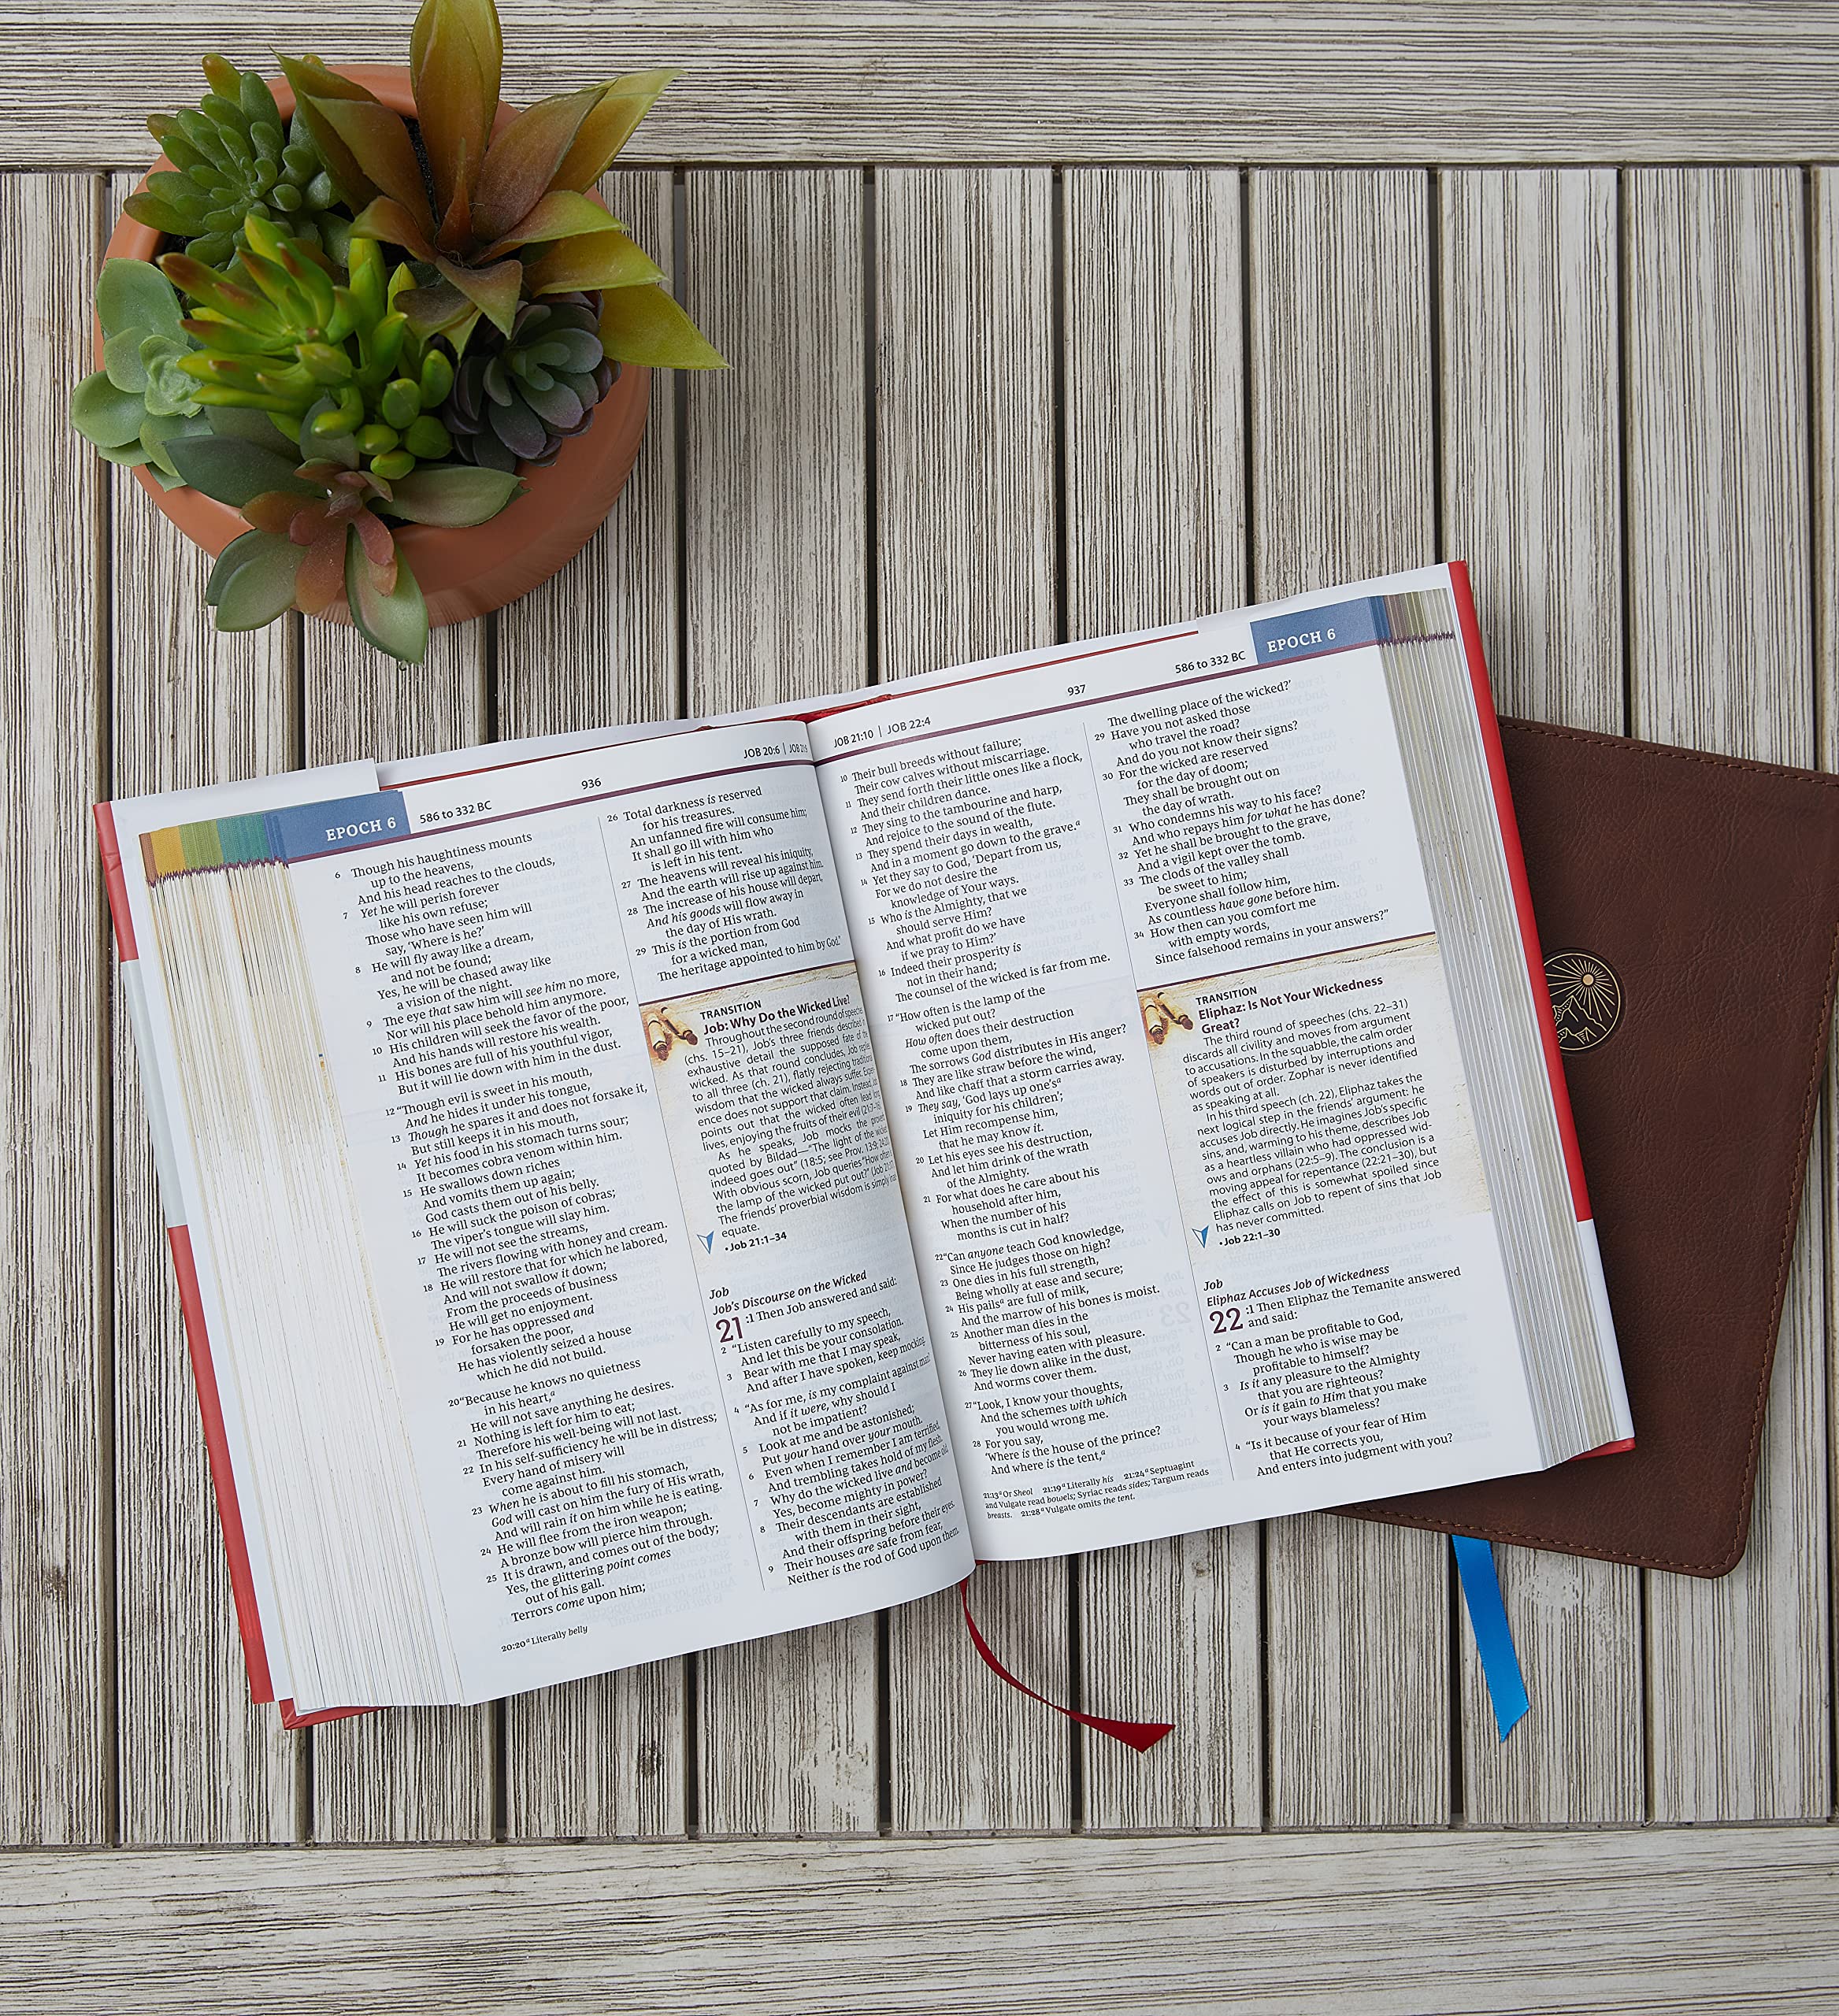 EPOCH 6
586 to 332 BC
936
JOB 20:6 | JOB 21:9
6 Though his haughtiness mounts
up to the heavens,
And his head reaches to the clouds,
7 Yet he will perish forever
like his own refuse;
Those who have seen him will
say, ‘Where is he?’
8 He will fly away like a dream,
and not be found;
Yes, he will be chased away like
a vision of the night.
9 The eye that saw him will see him no more,
Nor will his place behold him anymore.
10 His children will seek the favor of the poor,
And his hands will restore his wealth.
11 His bones are full of his youthful vigor,
But it will lie down with him in the dust.
12 “Though evil is sweet in his mouth,
And he hides it under his tongue,
13 Though he spares it and does not forsake it,
But still keeps it in his mouth,
14 Yet his food in his stomach turns sour;
It becomes cobra venom within him.
15 He swallows down riches
And vomits them up again;
God casts them out of his belly.
16 He will suck the poison of cobras;
The viper’s tongue will slay him.
17 He will not see the streams,
The rivers flowing with honey and cream.
18 He will restore that for which he labored,
And will not swallow it down;
From the proceeds of business
He will get no enjoyment.
19 For he has oppressed and
forsaken the poor,
He has violently seized a house
which he did not build.
20 “Because he knows no quietness
in his heart,a
He will not save anything he desires.
21 Nothing is left for him to eat;
Therefore his well-being will not last.
22 In his self-sufficiency he will be in distress;
Every hand of misery will
come against him.
23 When he is about to fill his stomach,
God will cast on him the fury of His wrath,
And will rain it on him while he is eating.
24 He will flee from the iron weapon;
A bronze bow will pierce him through.
25 It is drawn, and comes out of the body;
Yes, the glittering point comes
out of his gall.
Terrors come upon him;
20:20 a Literally belly
26 Total darkness is reserved
for his treasures.
An unfanned fire will consume him;
It shall go ill with him who
is left in his tent.
27 The heavens will reveal his iniquity,
And the earth will rise up against him.
28 The increase of his house will depart,
And his goods will flow away in
the day of His wrath.
29 This is the portion from God
for a wicked man,
The heritage appointed to him by God.”
TRANSITION
Job: Why Do the Wicked Live?
Throughout the second round of speeches
(chs. 15–21), Job’s three friends described in
exhaustive detail the supposed fate of the
wicked. As that round concludes, Job replies
to all three (ch. 21), flatly rejecting traditional
wisdom that the wicked always suffer. Experi-
ence does not support that claim. Instead, Job
points out that the wicked often lead long
lives, enjoying the fruits of their evil (21:7–16).
As he speaks, Job mocks the proverb
quoted by Bildad—“The light of the wicked
indeed goes out” (18:5; see Prov. 13:9; 24:20).
With obvious scorn, Job queries “How often is
the lamp of the wicked put out?” (Job 21:17).
The friends’ proverbial wisdom is simply inad-
equate.
• Job 21:1–34
Job
Job’s Discourse on the Wicked
21 :1 Then Job answered and said:
2 “Listen carefully to my speech,
And let this be your consolation.
3 Bear with me that I may speak,
And after I have spoken, keep mocking.
4 “As for me, is my complaint against man?
And if it were, why should I
not be impatient?
5 Look at me and be astonished;
Put your hand over your mouth.
6 Even when I remember I am terrified,
And trembling takes hold of my flesh.
7 Why do the wicked live and become old,
Yes, become mighty in power?
8 Their descendants are established
with them in their sight,
And their offspring before their eyes.
9 Their houses are safe from fear,
Neither is the rod of God upon them.
JOB 21:10 | JOB 22:4
937
586 to 332 BC
EPOCH 6
10 Their bull breeds without failure;
Their cow calves without miscarriage.
11 They send forth their little ones like a flock,
And their children dance.
12 They sing to the tambourine and harp,
And rejoice to the sound of the flute.
13 They spend their days in wealth,
And in a moment go down to the grave.a
14 Yet they say to God, ‘Depart from us,
For we do not desire the
knowledge of Your ways.
15 Who is the Almighty, that we
should serve Him?
And what profit do we have
if we pray to Him?’
16 Indeed their prosperity is
not in their hand;
The counsel of the wicked is far from me.
17 “How often is the lamp of the
wicked put out?
How often does their destruction
come upon them,
The sorrows God distributes in His anger?
18 They are like straw before the wind,
And like chaff that a storm carries away.
19 They say, ‘God lays up one’sa
iniquity for his children’;
Let Him recompense him,
that he may know it.
20 Let his eyes see his destruction,
And let him drink of the wrath
of the Almighty.
21 For what does he care about his
household after him,
When the number of his
months is cut in half?
22 “Can anyone teach God knowledge,
Since He judges those on high?
23 One dies in his full strength,
Being wholly at ease and secure;
24 His pailsa are full of milk,
And the marrow of his bones is moist.
25 Another man dies in the
bitterness of his soul,
Never having eaten with pleasure.
26 They lie down alike in the dust,
And worms cover them.
27 “Look, I know your thoughts,
And the schemes with which
you would wrong me.
28 For you say,
‘Where is the house of the prince?
And where is the tent,a
21:13 a Or Sheol 21:19 a Literally his 21:24 a Septuagint
and Vulgate read bowels; Syriac reads sides; Targum reads
breasts. 21:28 a Vulgate omits the tent.
The dwelling place of the wicked?’
29 Have you not asked those
who travel the road?
And do you not know their signs?
30 For the wicked are reserved
for the day of doom;
They shall be brought out on
the day of wrath.
31 Who condemns his way to his face?
And who repays him for what he has done?
32 Yet he shall be brought to the grave,
And a vigil kept over the tomb.
33 The clods of the valley shall
be sweet to him;
Everyone shall follow him,
As countless have gone before him.
34 How then can you comfort me
with empty words,
Since falsehood remains in your answers?”
TRANSITION
Eliphaz: Is Not Your Wickedness
Great?
The third round of speeches (chs. 22–31)
discards all civility and moves from argument
to accusations. In the squabble, the calm order
of speakers is disturbed by interruptions and
words out of order. Zophar is never identified
as speaking at all.
In his third speech (ch. 22), Eliphaz takes the
next logical step in the friends’ argument: he
accuses Job directly. He imagines Job’s specific
sins, and, warming to his theme, describes Job
as a heartless villain who had oppressed wid-
ows and orphans (22:5–9). The conclusion is a
moving appeal for repentance (22:21–30), but
the effect of this is somewhat spoiled since
Eliphaz calls on Job to repent of sins that Job
has never committed.
• Job 22:1–30
Job
Eliphaz Accuses Job of Wickedness
22 :1 Then Eliphaz the Temanite answered
and said:
2 “Can a man be profitable to God,
Though he who is wise may be
profitable to himself?
3 Is it any pleasure to the Almighty
that you are righteous?
Or is it gain to Him that you make
your ways blameless?
4 “Is it because of your fear of Him
that He corrects you,
And enters into judgment with you?